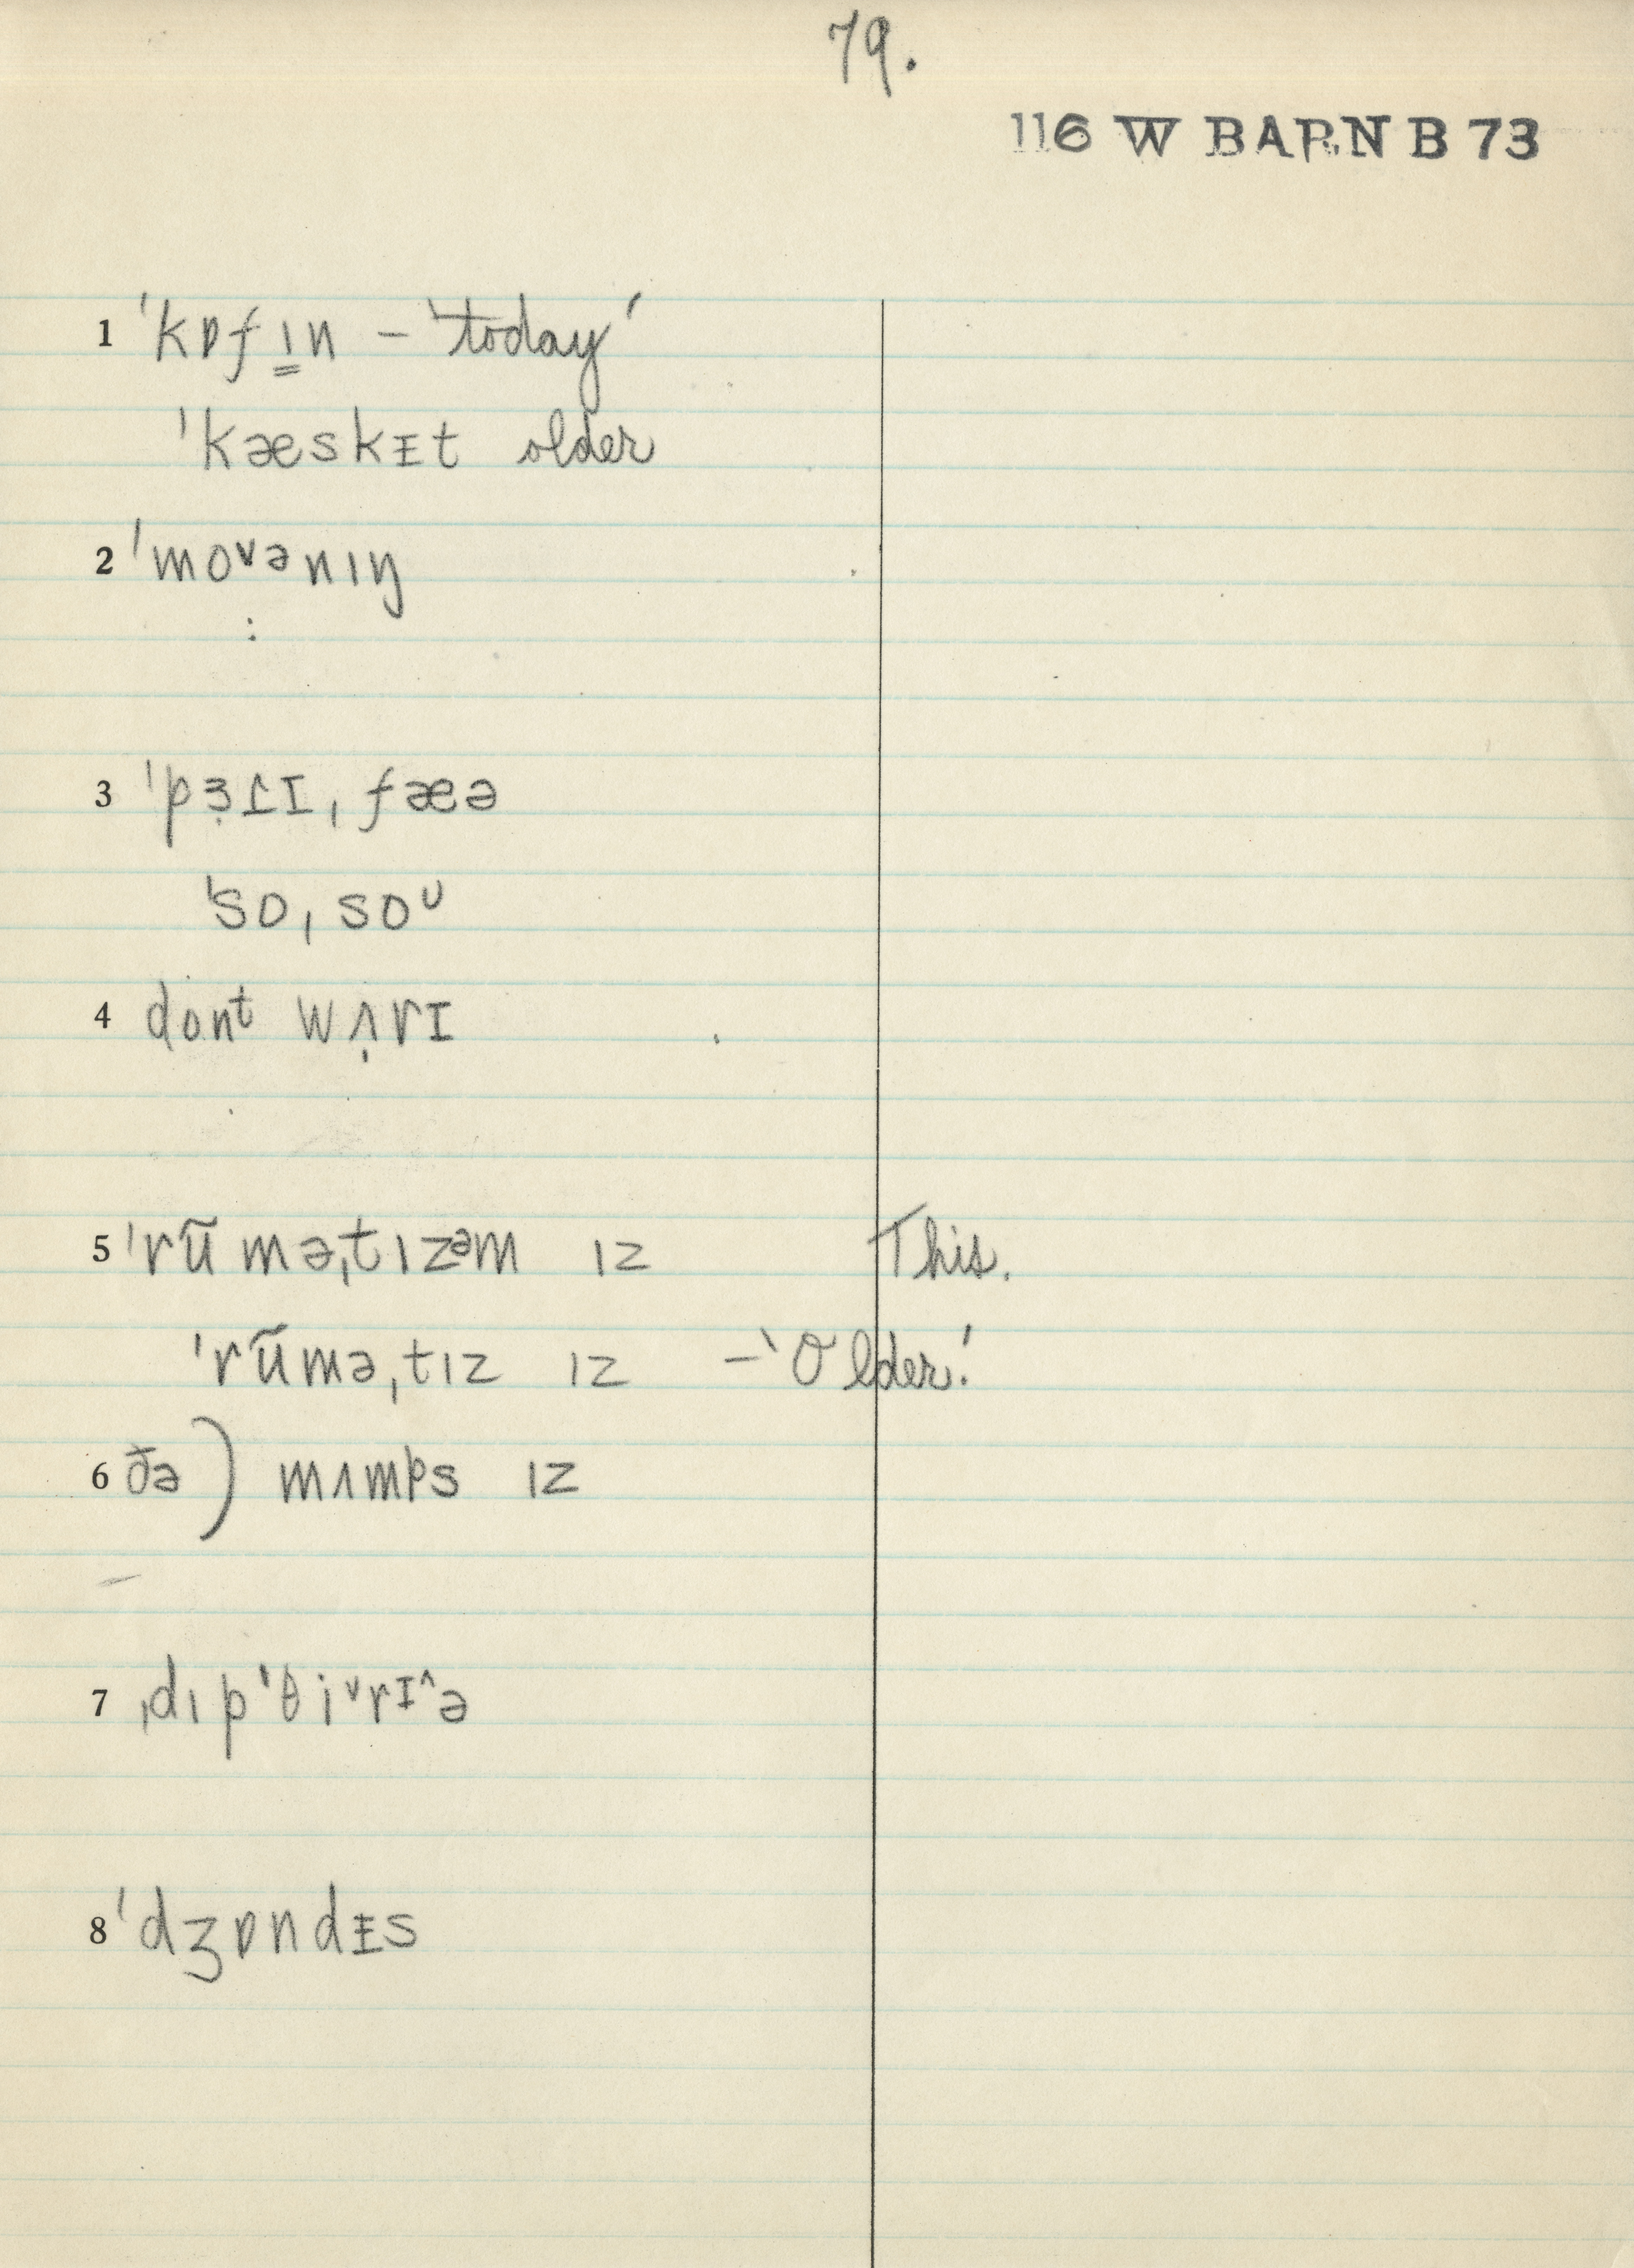 79.
116 W BARN B 73
1 ˈkɒfı̳n – 'today'
ˈkæskᵻt older
2 ˈmoᵛənıŋ
:
3 ˈpɜ̣ɾɪ, fæə
ˈso, soᵁ
4 donᵗ wʌ̣rɪ
5 ˈrũməˌtızᵊm ız This.
ˈrũməˌtız ız – 'Older.'
6 ðə ) mʌmps ız
7 ˌdıpˈθiᵛrɪ^ə
8 ˈdʒɒndᵻs